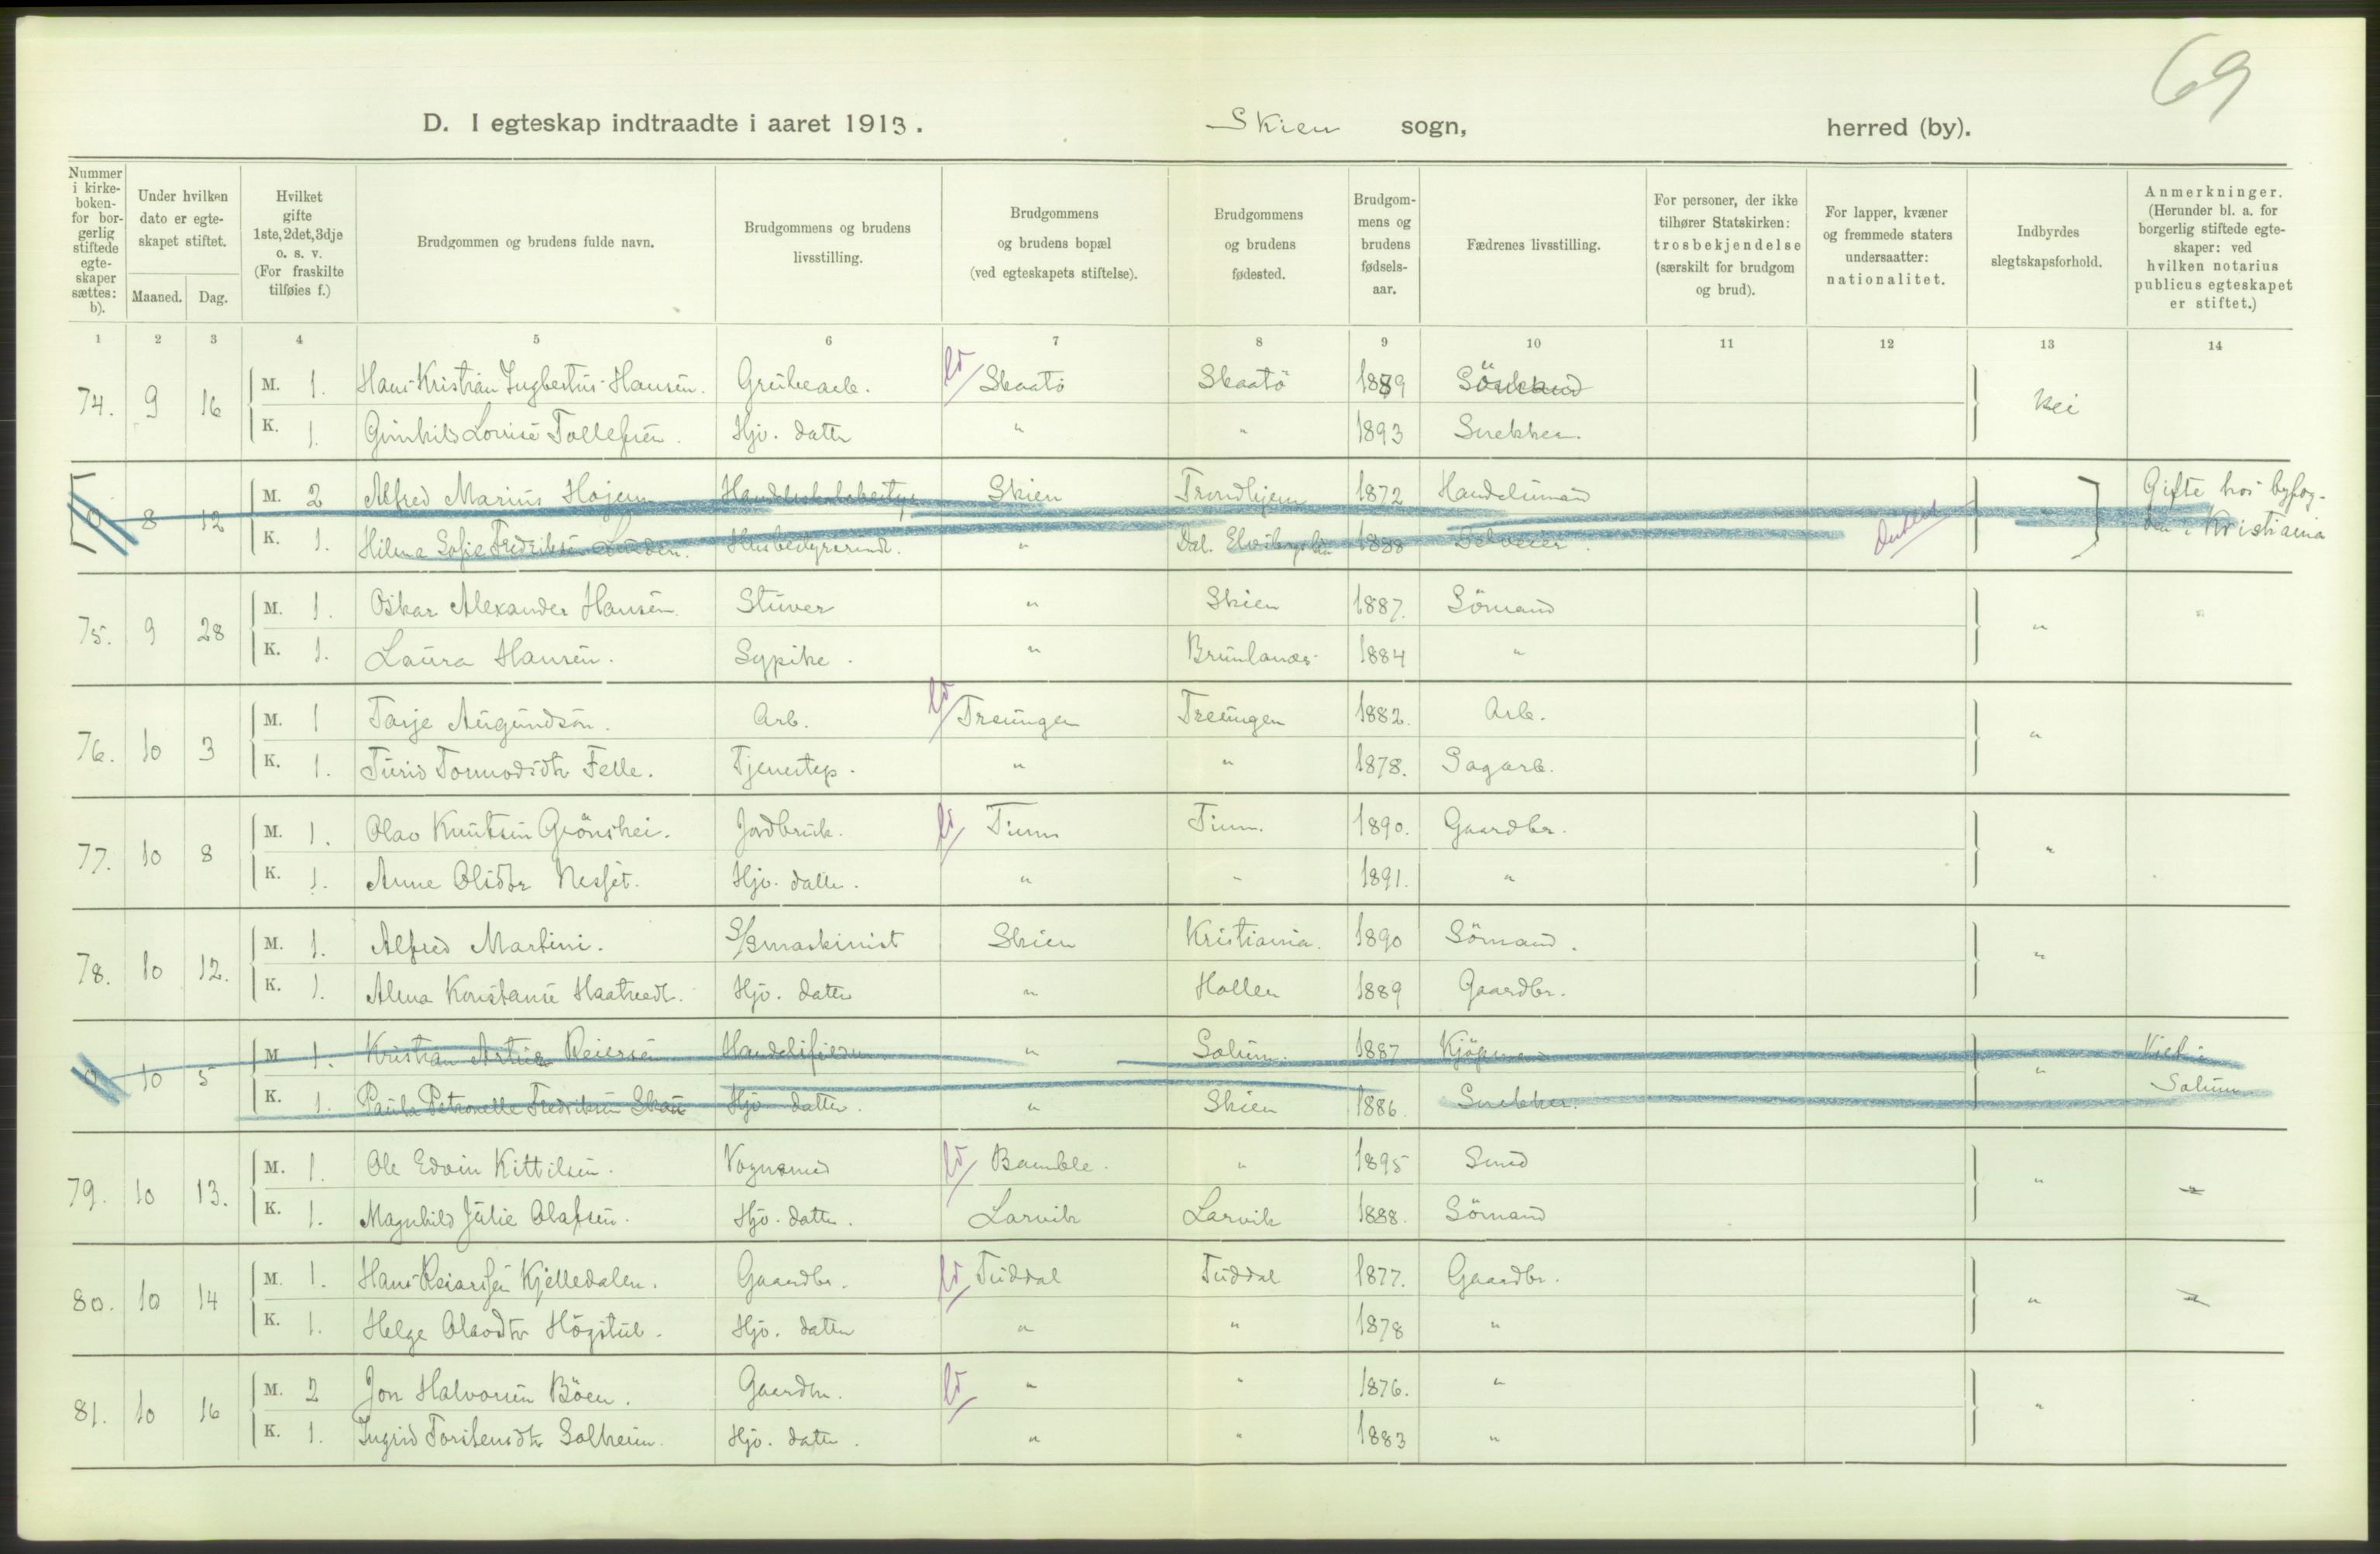 69
D. I egteskap indtraadte i aaret 1913. Skien sogn, herred (by).
Nummer i kirke-boken- for bor-gerlig stiftede egte-skaper sættes: b).
Under hvilken dato er egte-skapet stiftet.
Maaned. Dag.
Hvilket gifte 1ste, 2det, 3dje o. s. v. (For fraskilte tilføies f.)
Brudgommen og brudens fulde navn.
Brudgommens og brudens livsstilling.
Brudgommens og brudens bopæl (ved egteskapets stiftelse).
Brudgommens og brudens fødested.
Brudgom-mens og brudens fødsels-aar.
Fædrenes livsstilling.
For personer, der ikke tilhører Statskirken: trosbekjendelse (særskilt for brudgom og brud).
For lapper, kvæner og fremmede staters undersaatter: nationalitet.
Indbyrdes slegtskapsforhold.
Anmerkninger. (Herunder bl. a. for borgerlig stiftede egte-skaper: ved hvilken notarius publicus egteskapet er stiftet.)
1 2 3 4 5 6 7 8 9 10 11 12 13 14
74. 9 16 M. 1. Hans Kristian Ingbertus Hansen. Grubearb. Skaatö Skaatö 1889 Sömand Nei
K. 1. Gunhild Lovise Tollefsen. Hjv. datter " " 1893 Snekker.
8 12 M. 2 Alfred Marius Hojem Handelsskolebestyr Skien Trondhjem 1872 Handelsmand " Gifte hos byfog-
K. 1. Hilma Sofie Fredriksen Lunden. Husbestyrerinde. " 1888 Selveier. den i Kristiania
75. 9 28 M. 1. Oskar Alexander Hansen Stuver " Skien 1887. Sömand "
K. 1. Laura Hansen. Sypike. " Brunlanes 1884 "
76. 10 3 M. 1 Tarje Augundsön. Arb. Treungen Treungen 1882. Arb. "
K. 1. Turid Tormodsdtr Felle. Tjenestep. " " 1878. Sagarb.
77. 10 8 M. 1. Olav Knutsen Grönskei. Jordbruk. Tinn Tinn. 1890. Gaardbr. "
K. 1. Anne Olsdtr Nesset. Hjv. datter. " " 1891. "
78. 10 12. M. 1. Alfred Martini. S/Smaskinist Skien Kristiania. 1890 Sömand. "
K. 1. Alma Konstanse Haatvedt. Hjv. datter " Hollen 1889 Gaardbr.
10 5 M. 1. Kristian Artur Reiersen " Solum. 1887 " Viet i
K. 1. Paula Petronelle Fredriksen Skau Hjv datter. " Skien 1886. Snekker. Solum
79. 10 13. M. 1. Ole Edvin Kittilsen. Vognsmed Bamble. " 1895 Smed "
K. 1. Magnhild Julie Olafsen. Hjv. datter. Larvik Larvik 1888. Sömand
80. 10 14 M. 1. Hans Reiarsen Kjelledalen. Gaardbr. Tuddal Tuddal 1877. Gaardbr. "
K. 1. Helge Olavdtr Högstul. Hjv. datter " " 1878 "
81. 10 16 M. 2 Jon Halvorsen Böen. Gaardbr. " " 1876. " "
K. 1. Ingrid Torstensdtr Solheim. Hjv. datter. " " 1883 "